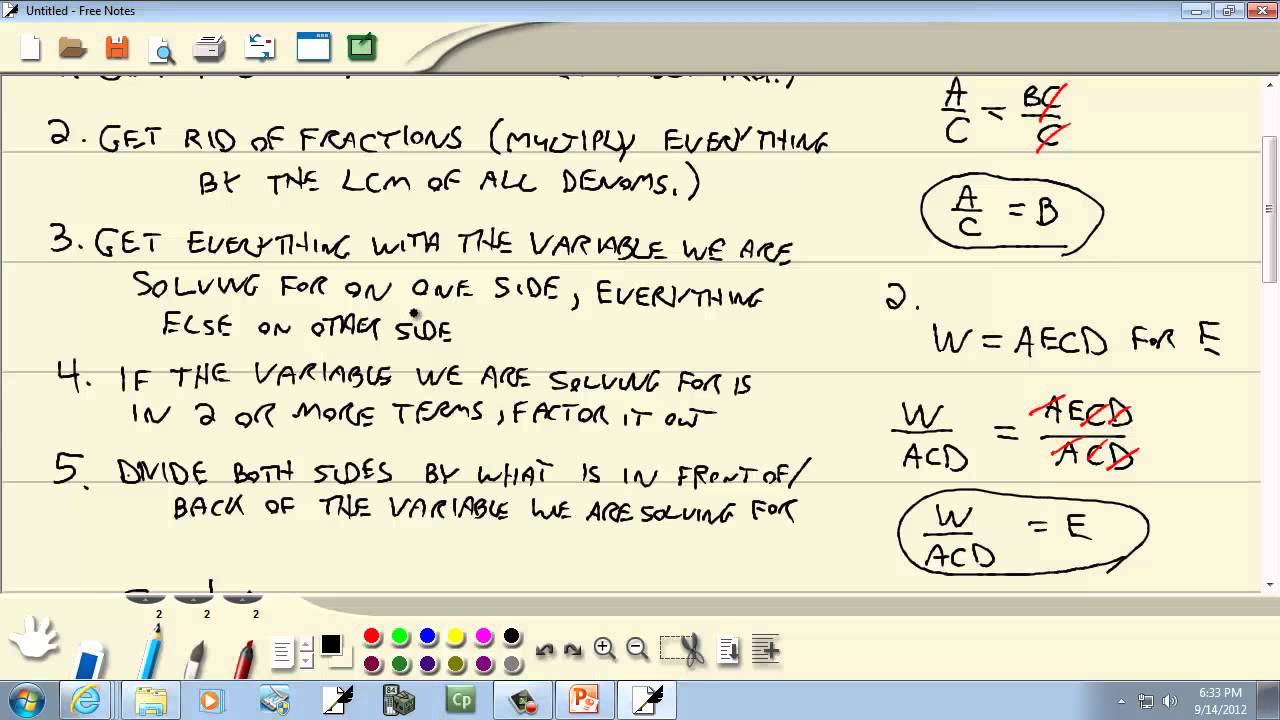 Untitled - Free Notes
2. GET RID OF FRACTIONS (MULTIPLY EVERYTHING
BY THE LCM OF ALL DENOMS.)
3. GET EVERYTHING WITH THE VARIABLE WE ARE
SOLVING FOR ON ONE SIDE, EVERYTHING
ELSE ON OTHER SIDE
4. IF THE VARIABLE WE ARE SOLVING FOR IS
IN 2 OR MORE TERMS, FACTOR IT OUT
5. DIVIDE BOTH SIDES BY WHAT IS IN FRONT OF/
BACK OF THE VARIABLE WE ARE SOLVING FOR
A/C = BC/C
A/C = B
2.
W = AECD FOR E
W/ACD = AECD/ACD
W/ACD = E
2 2 2
84
Cp
6:33 PM
9/14/2012